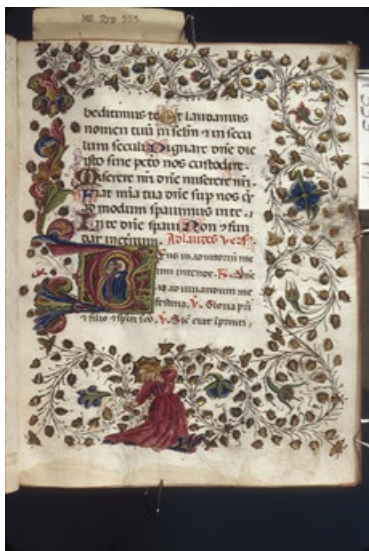 MS. Typ 553
benedicimus te Et laudamus
nomen tuũ in sclm ⁊ in secu
lum seculi Dignare dñe die
isto sine pctõ nos custodire.
Miserere nri dñe miserere nri.
Fiat mia tua dñe sup nos q̃
ad modum spauimus in te.
In te dñe spaui Non cfun
dar in eternum. Ad laudes vers.
eus in adiutoriũ me
um intende. R. Dñe
ad adiuuandum me
festina. V. Gloria pri
⁊ filio ⁊ spui sco. V. Sic erat